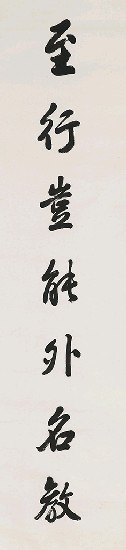 至行豈能外名教